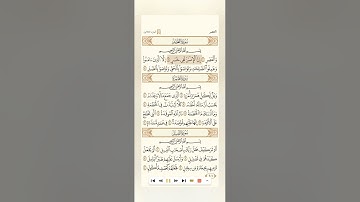 العصر
سُورَةُ العَصْرِ
بِسْمِ اللَّهِ الرَّحْمَٰنِ الرَّحِيمِ
وَالْعَصْرِ ١ إِنَّ الْإِنسَٰنَ لَفِي خُسْرٍ ٢ إِلَّا الَّذِينَ ءَامَنُوا
وَعَمِلُوا الصَّٰلِحَٰتِ وَتَوَاصَوْا بِالْحَقِّ وَتَوَاصَوْا بِالصَّبْرِ ٣
سُورَةُ الهُمَزَةِ
بِسْمِ اللَّهِ الرَّحْمَٰنِ الرَّحِيمِ
وَيْلٌ لِّكُلِّ هُمَزَةٍ لُّمَزَةٍ ١ الَّذِي جَمَعَ مَالًا وَعَدَّدَهُ ٢
يَحْسَبُ أَنَّ مَالَهُ أَخْلَدَهُ ٣ كَلَّا لَيُنبَذَنَّ فِي الْحُطَمَةِ ٤
وَمَا أَدْرَىٰكَ مَا الْحُطَمَةُ ٥ نَارُ اللَّهِ الْمُوقَدَةُ ٦ الَّتِي تَطَّلِعُ
عَلَى الْأَفْـِٔدَةِ ٧ إِنَّهَا عَلَيْهِم مُّؤْصَدَةٌ ٨ فِي عَمَدٍ مُّمَدَّدَةٍ ٩
سُورَةُ الفِيلِ
بِسْمِ اللَّهِ الرَّحْمَٰنِ الرَّحِيمِ
أَلَمْ تَرَ كَيْفَ فَعَلَ رَبُّكَ بِأَصْحَٰبِ الْفِيلِ ١ أَلَمْ يَجْعَلْ
كَيْدَهُمْ فِي تَضْلِيلٍ ٢ وَأَرْسَلَ عَلَيْهِمْ طَيْرًا أَبَابِيلَ ٣
تَرْمِيهِم بِحِجَارَةٍ مِّن سِجِّيلٍ ٤ فَجَعَلَهُمْ كَعَصْفٍ مَّأْكُولٍ ٥